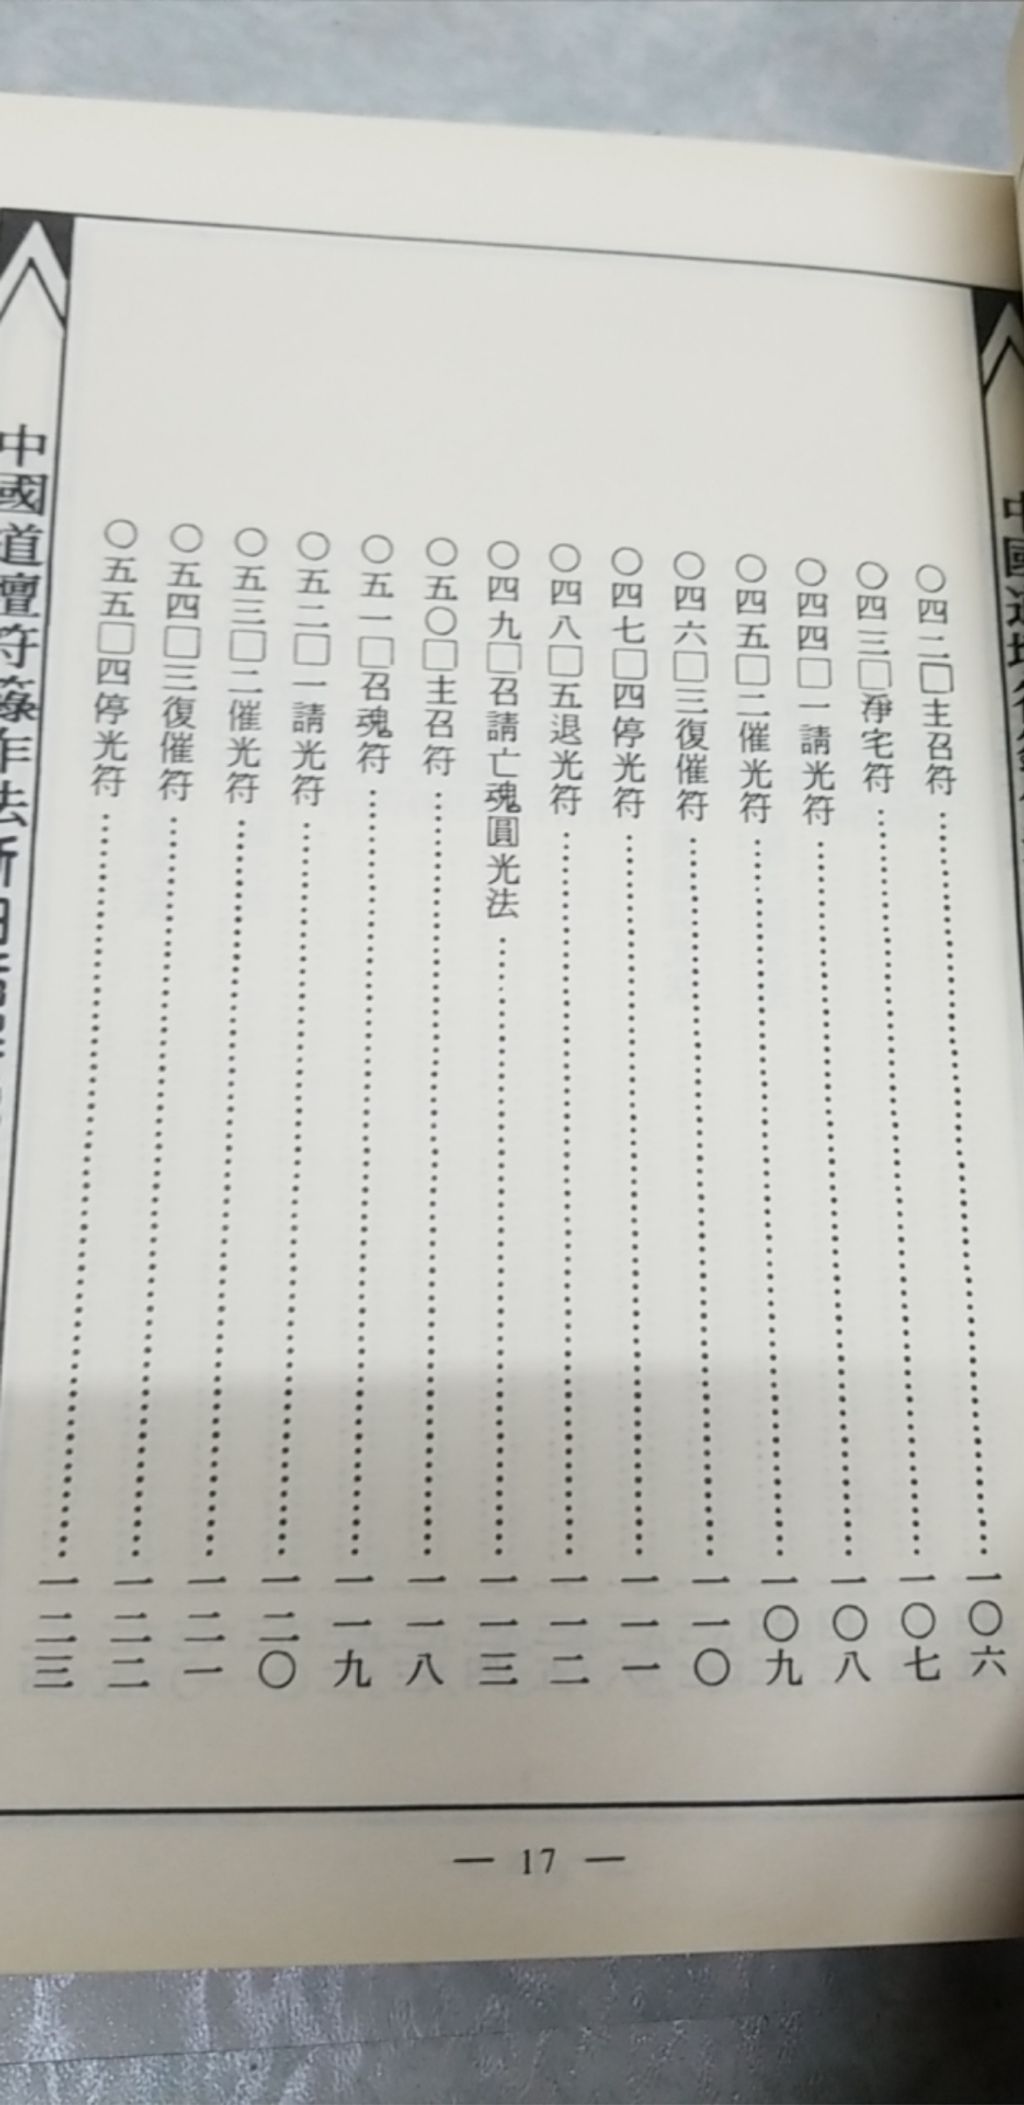 〇四二□主召符……一〇六
〇四三□淨宅符……一〇七
〇四四□一請光符……一〇八
〇四五□二催光符……一〇九
〇四六□三復催符……一一〇
〇四七□四停光符……一一一
〇四八□五退光符……一一二
〇四九□召請亡魂圓光法……一一三
〇五〇□主召符……一一八
〇五一□召魂符……一一九
〇五二□一請光符……一二〇
〇五三□二催光符……一二一
〇五四□三復催符……一二二
〇五五□四停光符……一二三
中國道壇符籙作法
— 17 —